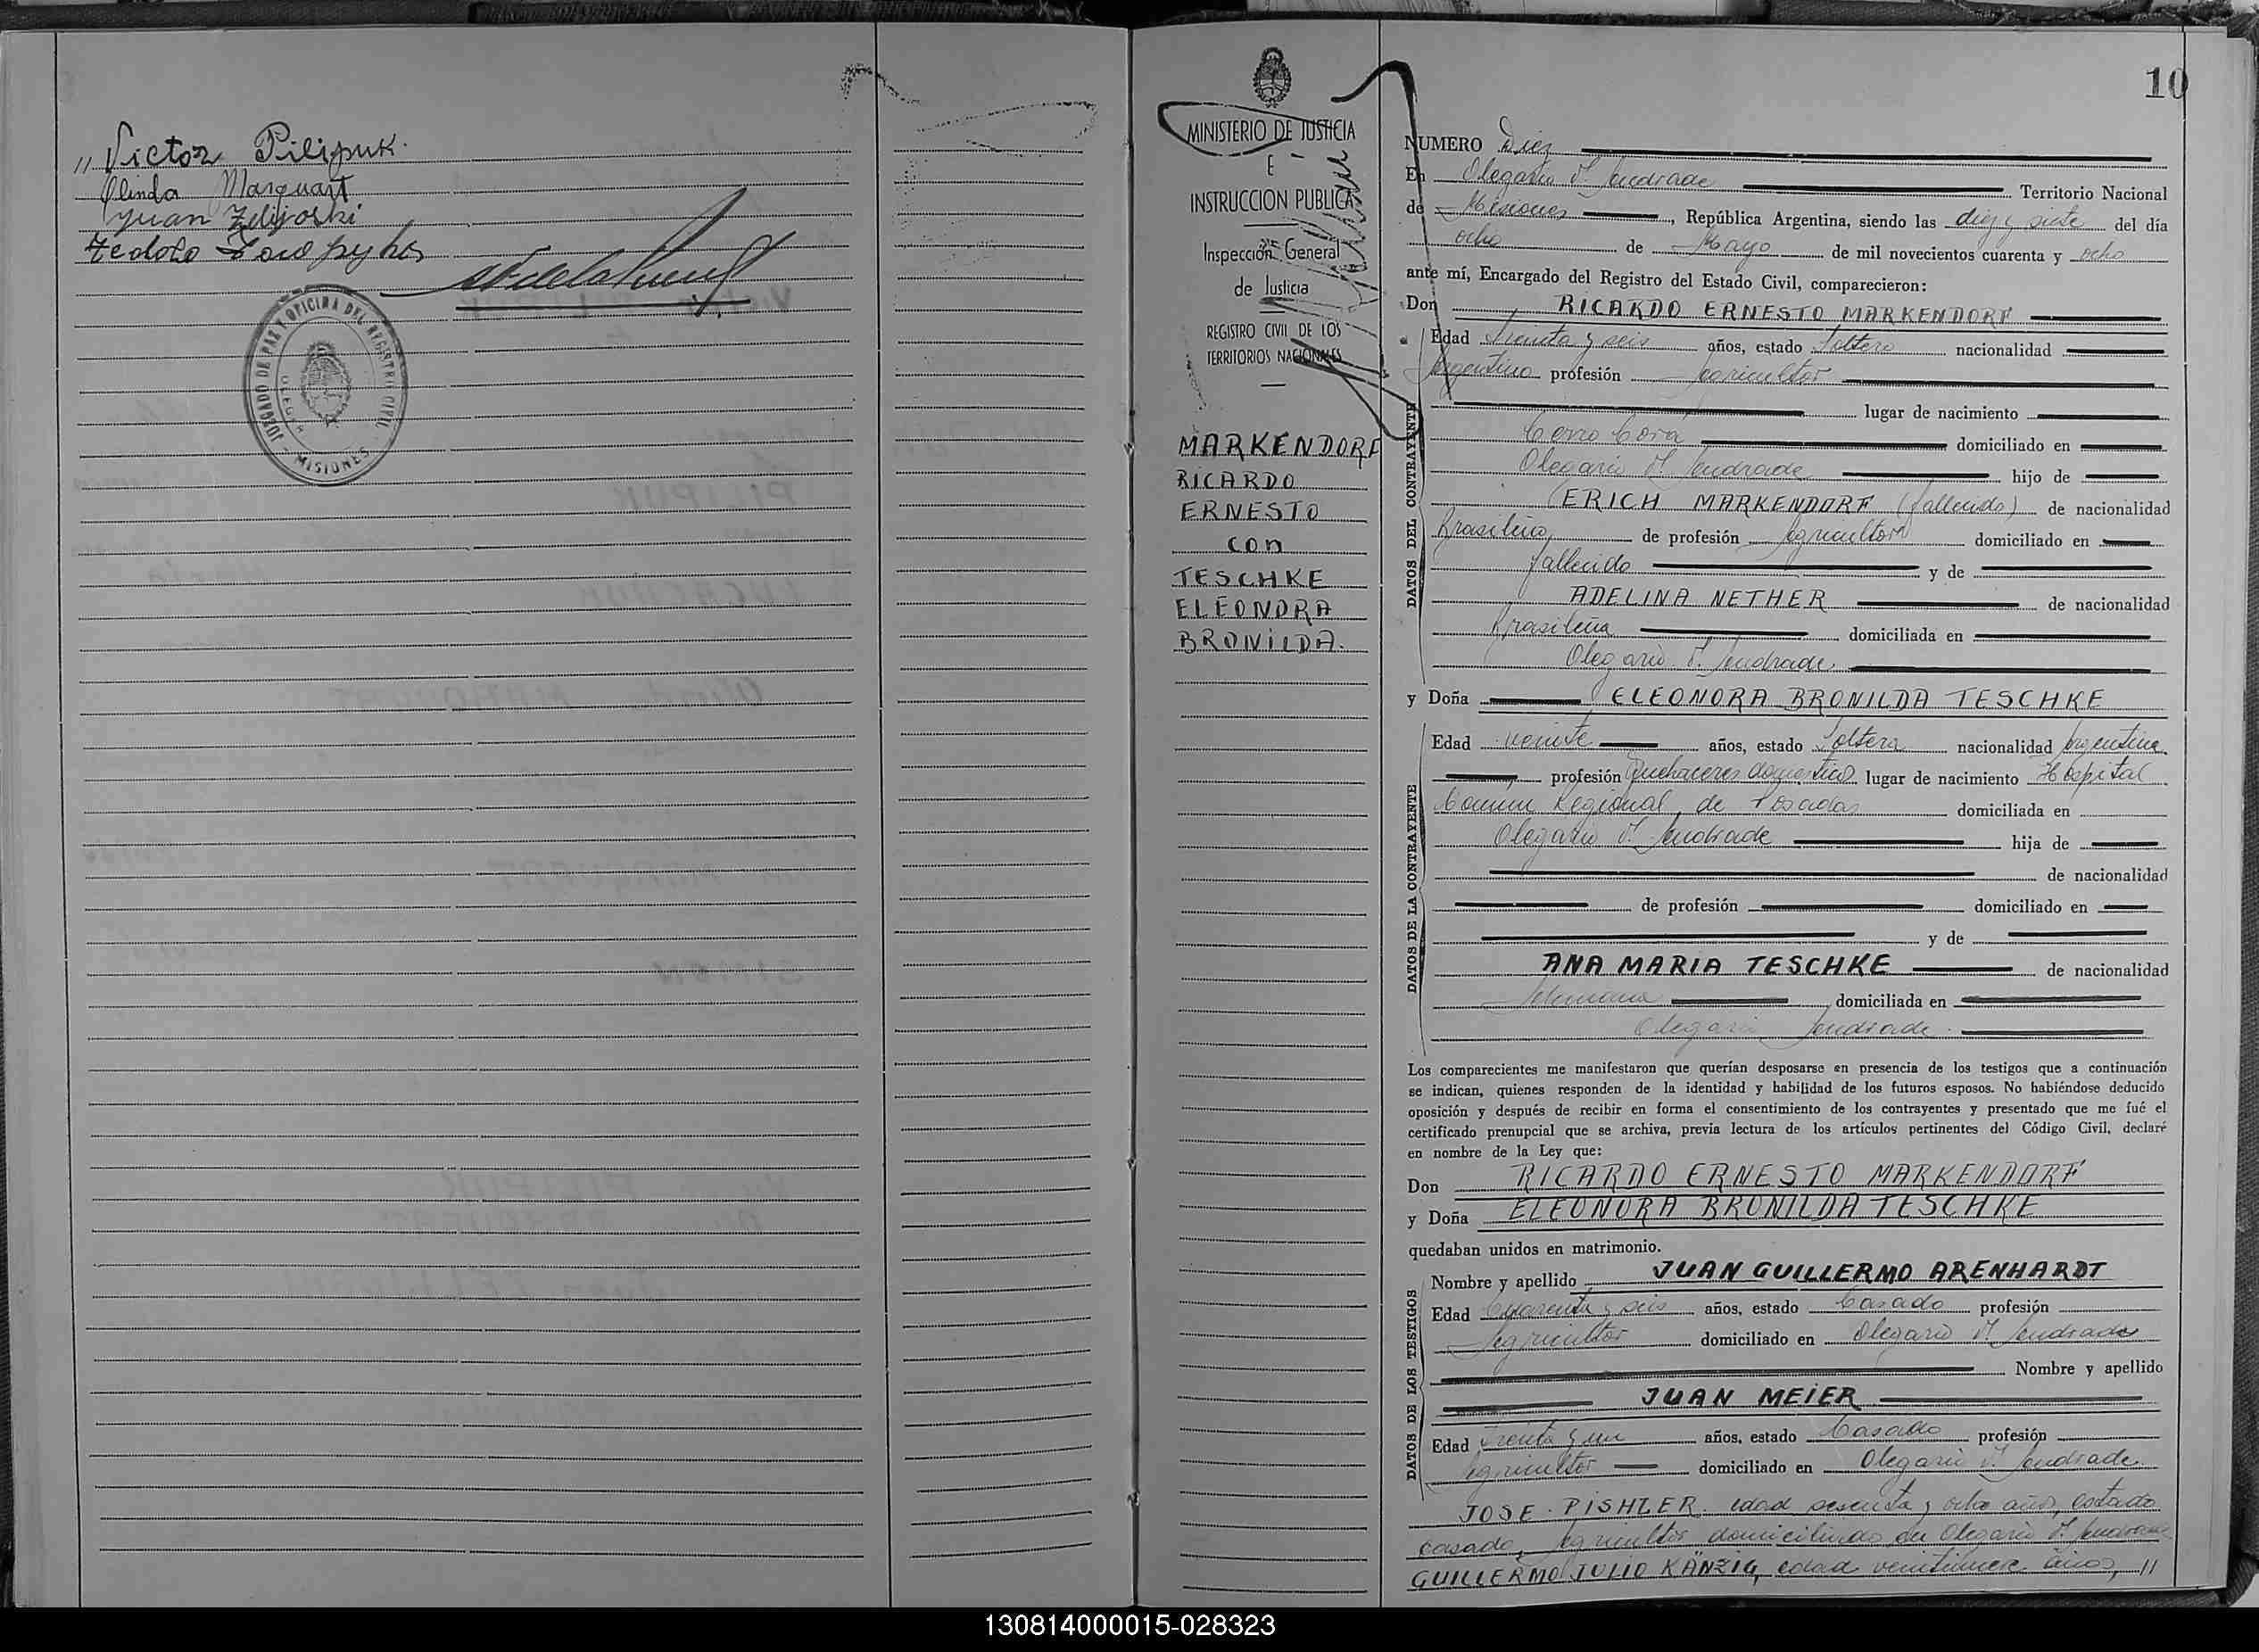 " Victor Pilipuk.
Olinda Marquart
Juan Zelijoski
JUZGADO DE PAZ Y OFICINA DEL REGISTRO CIVIL
MISIONES
10
MINISTERIO DE JUSTICIA
E
INSTRUCCION PUBLICA
Inspección General
de Justicia
REGISTRO CIVIL DE LOS
TERRITORIOS NACIONALES
MARKENDORF
RICARDO
ERNESTO
con
TESCHKE
ELEONORA
BRONILDA.
NUMERO Diez
En Olegario V. Andrade Territorio Nacional
de Misiones, República Argentina, siendo las diez y siete del día
ocho de Mayo de mil novecientos cuarenta y ocho
ante mí, Encargado del Registro del Estado Civil, comparecieron:
Don RICARDO ERNESTO MARKENDORF
DATOS DEL CONTRAYENTE
Edad Treinta y seis años, estado Soltero nacionalidad
Argentino profesión Agricultor
lugar de nacimiento
Cerro Corá domiciliado en
Olegario V. Andrade hijo de
ERICH MARKENDORF (fallecido) de nacionalidad
Brasileño de profesión Agricultor domiciliado en
fallecido y de
ADELINA NETHER de nacionalidad
Brasileña domiciliada en
Olegario V. Andrade
y Doña ELEONORA BRONILDA TESCHKE
DATOS DE LA CONTRAYENTE
Edad veinte años, estado Soltera nacionalidad Argentina
profesión Quehaceres domésticos lugar de nacimiento Hospital
Común Regional de Posadas domiciliada en
Olegario V. Andrade hija de
de nacionalidad
de profesión domiciliado en
y de
ANA MARIA TESCHKE de nacionalidad
Alemana domiciliada en
Olegario Andrade.
Los comparecientes me manifestaron que querían desposarse en presencia de los testigos que a continuación
se indican, quienes responden de la identidad y habilidad de los futuros esposos. No habiéndose deducido
oposición y después de recibir en forma el consentimiento de los contrayentes y presentado que me fué el
certificado prenupcial que se archiva, previa lectura de los artículos pertinentes del Código Civil, declaré
en nombre de la Ley que:
Don RICARDO ERNESTO MARKENDORF
y Doña ELEONORA BRONILDA TESCHKE
quedaban unidos en matrimonio.
DATOS DE LOS TESTIGOS
Nombre y apellido JUAN GUILLERMO ARENHARDT
Edad Cuarenta y seis años, estado Casado profesión
Agricultor domiciliado en Olegario V. Andrade
Nombre y apellido
JUAN MEIER
Edad Treinta y un años, estado Casado profesión
Agricultor domiciliado en Olegario V. Andrade.
JOSE PISHLER edad sesenta y ocho años, estado
casado, Agricultor domiciliado en Olegario V. Andrade
GUILLERMO JULIO KÄNZIG, edad veintinueve años, //
130814000015-028323